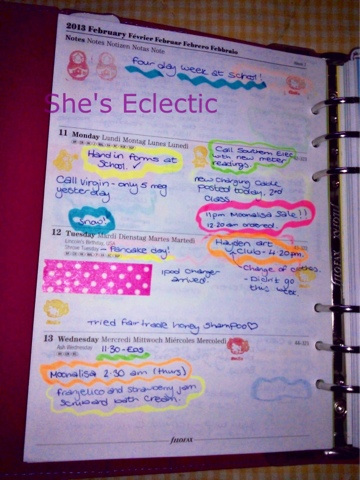 2013 February Février Februar Febrero Febbraio
Notes Notes Notizen Notas Note
four day week at school!
She's Eclectic
11 Monday Lundi Montag Lunes Lunedi
Hand in forms at
School.
Call Southern Elec
with new meter
readings.
Call Virgin - only 5 meg
yesterday
new Charging Cable
posted today, 2nd
Class
snow!!
11pm Moonalisa Sale!!
12.20am ordered.
12 Tuesday Mardi Dienstag Martes Martedi
Lincoln's Birthday, USA
Shrove Tuesday - Pancake day!
Hayden art
Club - 4.20pm.
- Change of clothes.
- Didn't go
this week.
ipod charger
arrived.
Tried fairtrade honey Shampoo♡
13 Wednesday Mercredi Mittwoch Miércoles Mercoledi
Ash Wednesday
11:30 - Eas
Moonalisa 2:30 am (thurs)
frangelico and strawberry jam
scrub and bath cream.
filofax